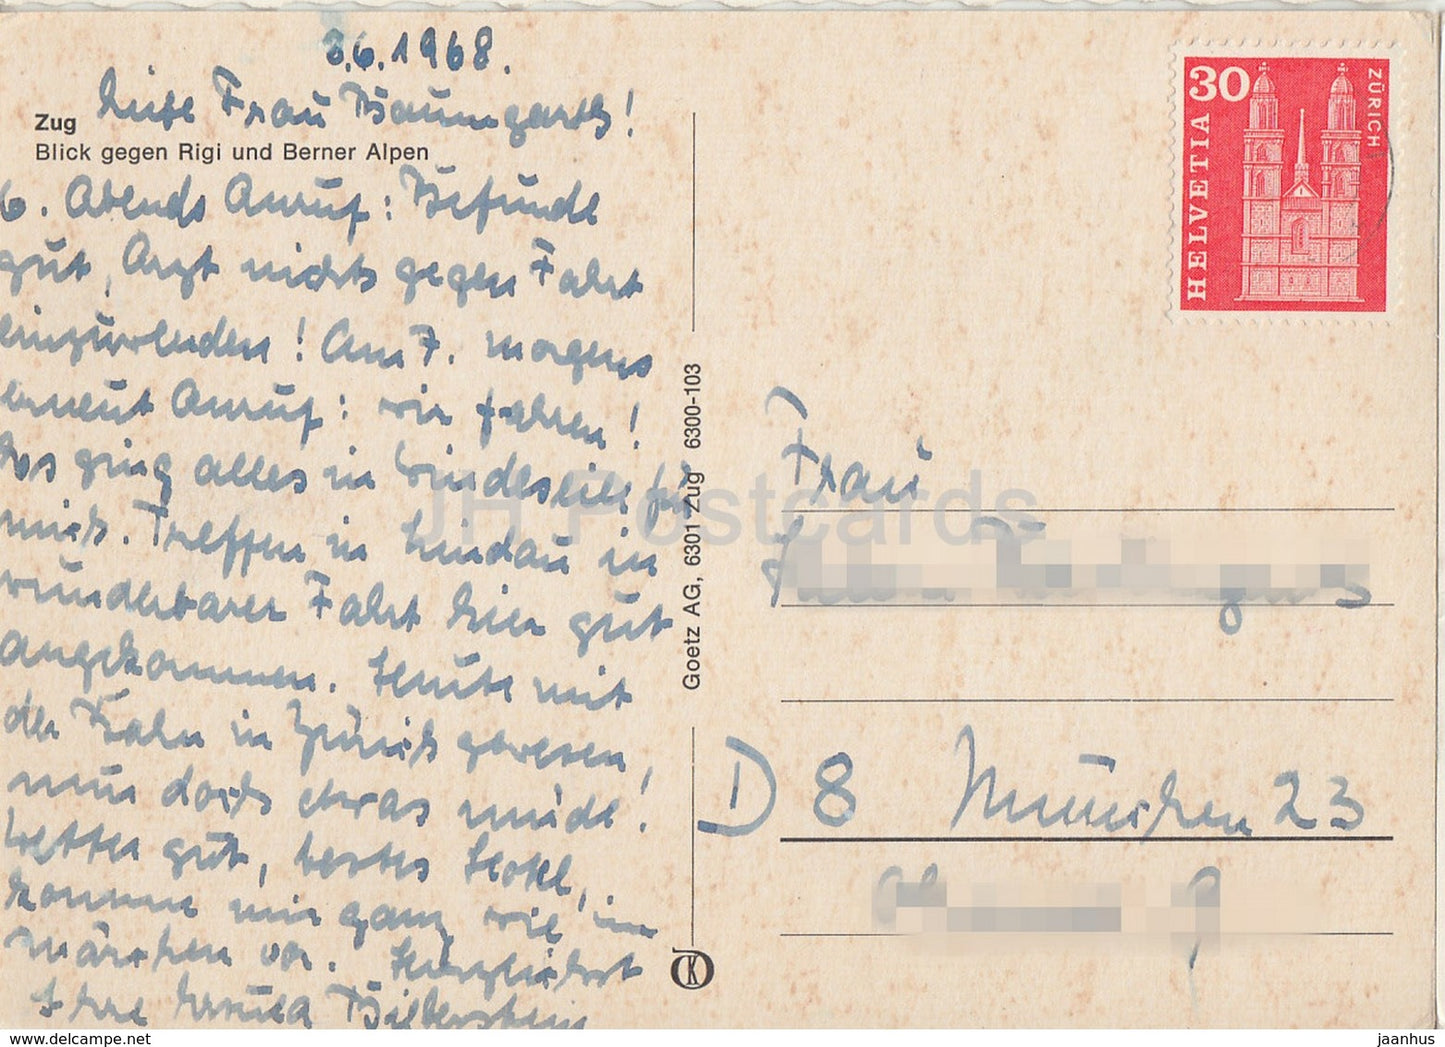 8.6.1968.
Liebe Frau Baumgarts!
Zug
Blick gegen Rigi und Berner Alpen
6. Abends Anruf: Befunde
gut, Arzt nichts gegen Fahrt
einzuwenden! Am 7. morgens
erneut Anruf: wir fahren!
Das ging alles in Windeseile für
mich. Treffen in Lindau, in
wunderbarer Fahrt hier gut
angekommen. Heute mit
der Bahn in Zürich gewesen,
nun doch etwas müde!
Wetter gut, bestes Hotel,
komme mir ganz wie im
Märchen vor. Herzlichst
Ihre Ursula Bieberstein
Goetz AG, 6301 Zug 6300-103
HELVETIA
30
ZÜRICH
Frau
D 8 München 23
JH Postcards
www.delcampe.net
jaanhus